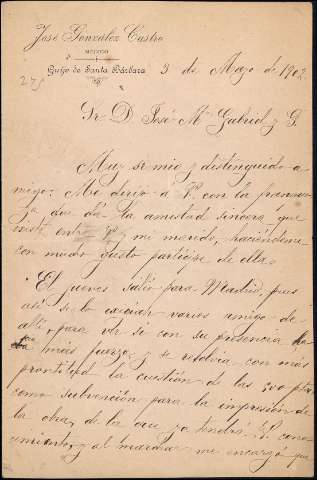 José González Castro
MÉDICO
Guijo de Santa Bárbara
3 de Mayo de 1902
Sr. D. José Mª Gabriel y G.
Muy sr mio y distinguido a-
migo: Me dirijo a V. con la
que da la amistad sincera que
existe entre V. y mi marido, haciéndome
con mucho gusto participe de ella.
El jueves salió para Madrid, pues
asi se lo varios amigos de
alli, para ver si con su presencia
más fuerza y se resolvia con más
prontitud la cuestión de las 500 ptas
como subvención para la impresión de
la obra, de la que ya tendrá V. cono-
cimiento, y al marchar me encargó que